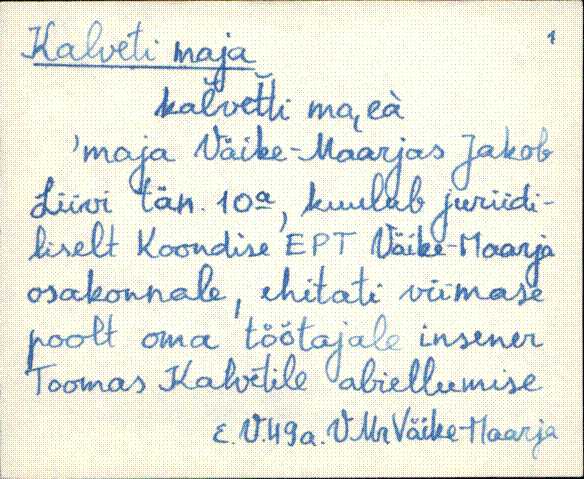 Kalveti maja 1
kalvetti ma,eà
'maja Väike-Maarjas Jakob
Liivi tän. 10a, kuulub juriidi-
liselt Koondise EPT Väike-Maarja
osakonnale, ehitati viimase
poolt oma töötajale insener
Toomas Kalvetile abiellumise
E. V. 49 a. VMr Väike-Maarja